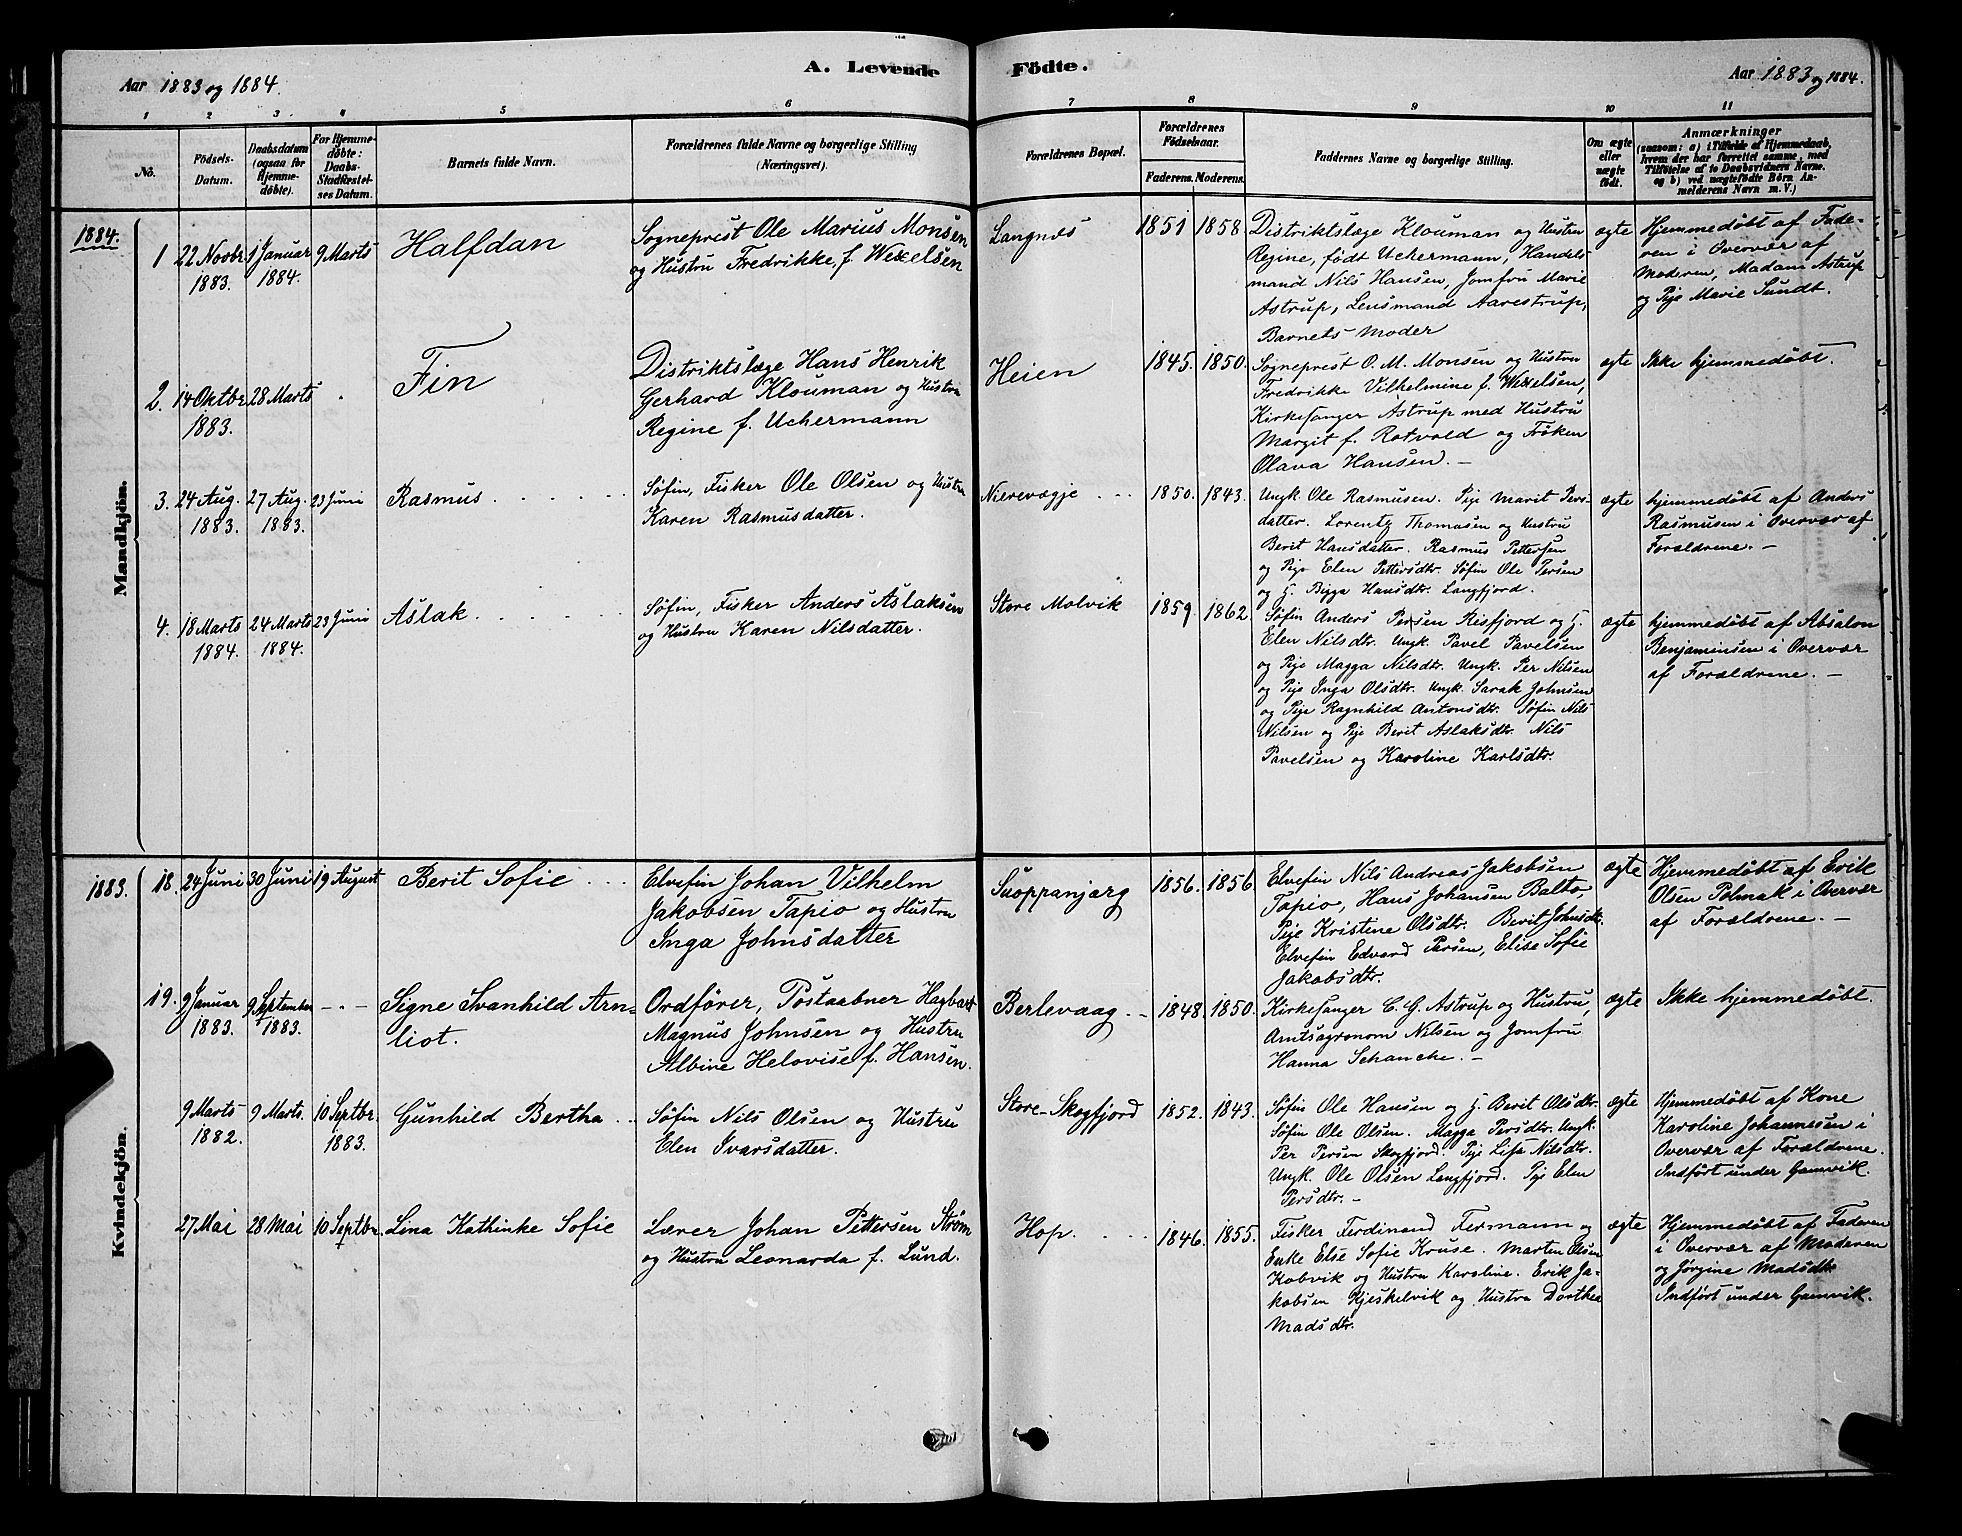 Aar 1883 og 1884.
A. Levende Födte.
Aar 1883 og 1884.
1 2 3 4 5 6 7 8 9 10 11
No.
Födsels-Datum.
Daabsdatum (ogsaa for Hjemmedöbte).
For Hjemmedöbte: Daabs-Stadfæstelses Datum.
Barnets fulde Navn.
Forældrenes fulde Navne og borgerlige Stilling (Næringsvei).
Forældrenes Bopæl.
Forældrenes Födselsaar.
Faderens. Moderens.
Faddernes Navne og borgerlige Stilling.
Om ægte eller uægte födt.
Anmærkninger
(saasom: a) i Tilfælde af Hjemmedaab, hvem der har forrettet samme, med Tilföielse af to Daabsvidners Navne. og b) ved uægtefödte Börn Anmelderens Navn m. V.)
Mandkjön.
1884.
1 22 Novbr. 1883. 1 Januar 1884. 9 Marts Halfdan
Sogneprest Ole Marius Monsen
og Hustru Fredrikke, f. Wexelsen
Langnæs 1851 1858
Distriktslæge Klouman og Hustru
Regine, født Uchermann, Handels
mand Nils Hansen, Jomfru Marie
Astrup, Lensmand Aarestrup,
Barnets Moder
ægte
Hjemmedøbt af Fade-
ren i Overvær af
Moderen, Madam Astrup
og Pige Marie Sundt.
2. 14 Oktbr. 1883. 28 Marts Fin
Distriktslæge Hans Henrik
Gerhard Klouman og Hustru
Regine f. Uchermann
Heien 1845. 1850.
Sogneprest O. M. Monsen og Hustru
Fredrikke Vilhelmine f. Wexelsen,
Kirkesanger Astrup med Hustru
Margit f. Rotvold og Frøken
Olava Hansen. –
ægte
Ikke hjemmedøbt.
3. 24 Aug. 1883. 27 Aug. 1883. 23 Juni Rasmus
Søfin, Fisker Ole Olsen og Hustru
Karen Rasmusdatter.
Nierevægje 1850. 1843.
Ungk. Ole Rasmusen. Pige Marit Pers-
datter. Lorentz Thomasen og Hustru
Berit Hansdatter. Rasmus Pettersen
og Pige Elen Pettersdtr. Søfin Ole Persen
og H. Bigga Hansdtr. Langfjord.
ægte
hjemmedøbt af Anders
Rasmusen i Overvær af
Forældrene. –
4. 18 Marts 1884. 24 Marts 1884. 23 Juni Aslak
Søfin, Fisker Anders Aslaksen
og Hustru Karen Nilsdatter.
Store Molvik 1859. 1862
Søfin Anders Persen Risfjord og H.
Elen Nilsdtr. Ungk. Pavel Pavelsen
og Pige Magga Nilsdtr. Ungk. Per Nilsen
og Pige Inga Olsdtr. Ungk. Sarak Johnsen
og Pige Ragnhild Antonsdtr. Søfin Nils
Nilsen og Pige Berit Aslaksdtr. Nils
Pavelsen og Karoline Karlsdtr.
ægte
hjemmedøbt af Absalon
Benjaminsen i Overvær
af Forældrene. –
Kvindekjön.
1883.
18. 24 Juni 30 Juni 19 August Berit Sofie
Elvefin Johan Vilhelm
Jakobsen Tapio og Hustru
Inga Johnsdatter
Suoppanjarg 1856. 1856
Elvefin Nils Andreas Jakobsen
Tapio, Hans Johansen Balto,
Pige Kristine Olsdtr. Berit Johnsdtr.
Elvefin Edvard Persen, Elise Sofie
Jakobsdtr.
ægte
Hjemmedøbt af Erik
Olsen Polmak i Overvær
af Forældrene. –
19. 9 Januar 1883. 9 September 1883. Signe Svanhild Arn-
liot.
Ordfører, Postaabner Hagbart
Magnus Johnsen og Hustru
Albine Helovise f. Hansen.
Berlevaag 1848. 1850.
Kirkesanger C. G. Astrup og Hustru,
Amtsagronom Nilsen og Jomfru
Hanna Schanche. –
ægte
Ikke hjemmedøbt.
9 Marts 1882. 9 Marts. 10 Septbr. 1883. Gunhild Bertha
Søfin Nils Olsen og Hustru
Elen Ivarsdatter.
Store-Skogfjord 1852. 1843.
Søfin Ole Hansen og H. Berit Olsdtr.
Søfin Ole Olsen. Magga Persdtr. Ungk.
Per Persen Skogfjord. Pige Lisa Nilsdtr.
Ungk. Ole Olsen Langfjord. Pige Elen
Persdtr. –
ægte
Hjemmedøbt af Kone
Karoline Johannesen i
Overvær af Forældrene.
Indført under Gamvik.
27 Mai 28 Mai 10 Septbr. Lina Kathinke Sofie
Lærer Johan Pettersen Strøm
og Hustru Leonarda f. Lund.
Hop. 1846. 1855.
Fisker Ferdinand Fermann og
Enke Else Sofie Kruse. Martin Olsen
Kobvik og Hustru Karoline. Erik Ja-
kobsen Kjeskelvik og Hustru Dorthea
Madsdtr.
ægte
Hjemmedøbt af Faderen
i Overvær af Moderen
og Jørgine Madsdtr.
Indført under Gamvik.